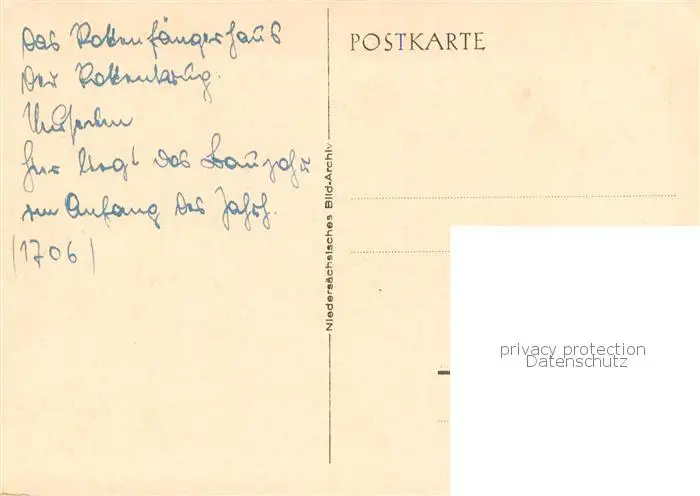 Das Rattenfängerhaus
Der Rattenkrug.
Museum
hier liegt das Baujahr
im Anfang des Jahrh.
(1706)
POSTKARTE
Niedersächsisches Bild-Archiv
privacy protection
Datenschutz